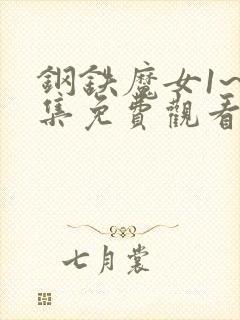 鋼鉄魔女1~
集免費觀看
七月裳